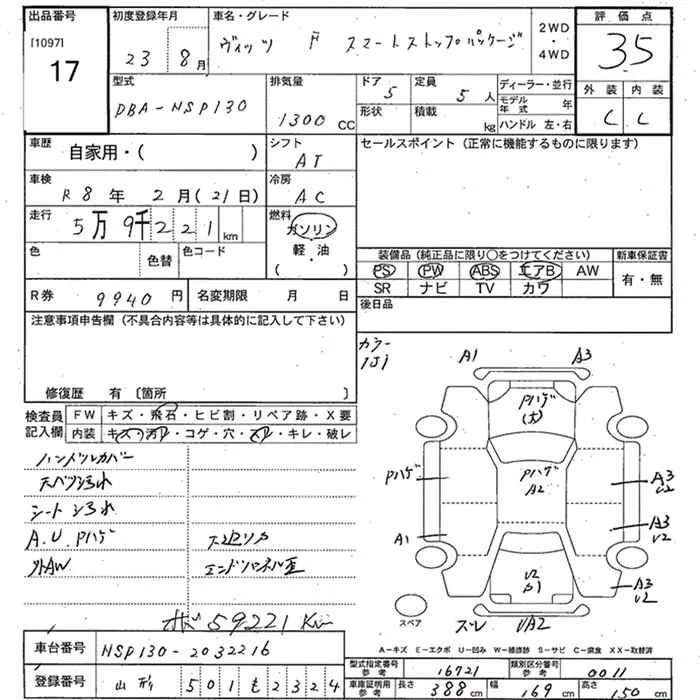 出品番号 初度登録年月 車名・グレード 2WD・4WD 評価点
[1097]
17 23 8月 ヴィッツ F スマートストップパッケージ 35
外装 内装
C C
型式 排気量 ドア 定員 ディーラー・並行
DBA-NSP130 1300 CC 5 5人 モデル年式 年
形状 積載 kg ハンドル 左・右
車歴 自家用・( ) シフト AT セールスポイント(正常に機能するものに限ります)
車検 R8年 2月(21日) 冷房 AC
走行 5万9千221km 燃料 ガソリン 軽・油 ( )
色 色替 色コード
装備品(純正品に限り○をつけてください) 新車保証書
PS PW ABS エアB AW 有・無
SR ナビ TV カワ
R券 9940円 名変期限 月 日 後日品
注意事項申告欄(不具合内容等は具体的に記入して下さい)
修復歴 有〔箇所 〕
カラー
1J1
検査員記入欄 FW キズ・飛石・ヒビ割・リペア跡・X要
内装 キズ・汚レ・コゲ・穴・スレ・キレ・破レ
ハンドルカバー
天ベタ汚れ
シート汚れ
A.U.Pハゲ
外AW
スペアリヤ
エンドパネル歪
59221Km
A1 A3
Pハゲ
(大)
Pハゲ
Pハゲ
A2
A3
U2
A1
A3
U2
U2
P1
A3
U2
スペア
ズレ UA2
A-キズ E-エクボ U-凹み W-補修跡 S-サビ C-腐食 XX-取替済
車台番号 NSP130-2032216
登録番号 山形 501 も 2324
型式指定番号 参考 16721 類別区分番号 参考 0011
車庫証明用 参考 長さ 388cm 幅 169cm 高さ 150cm